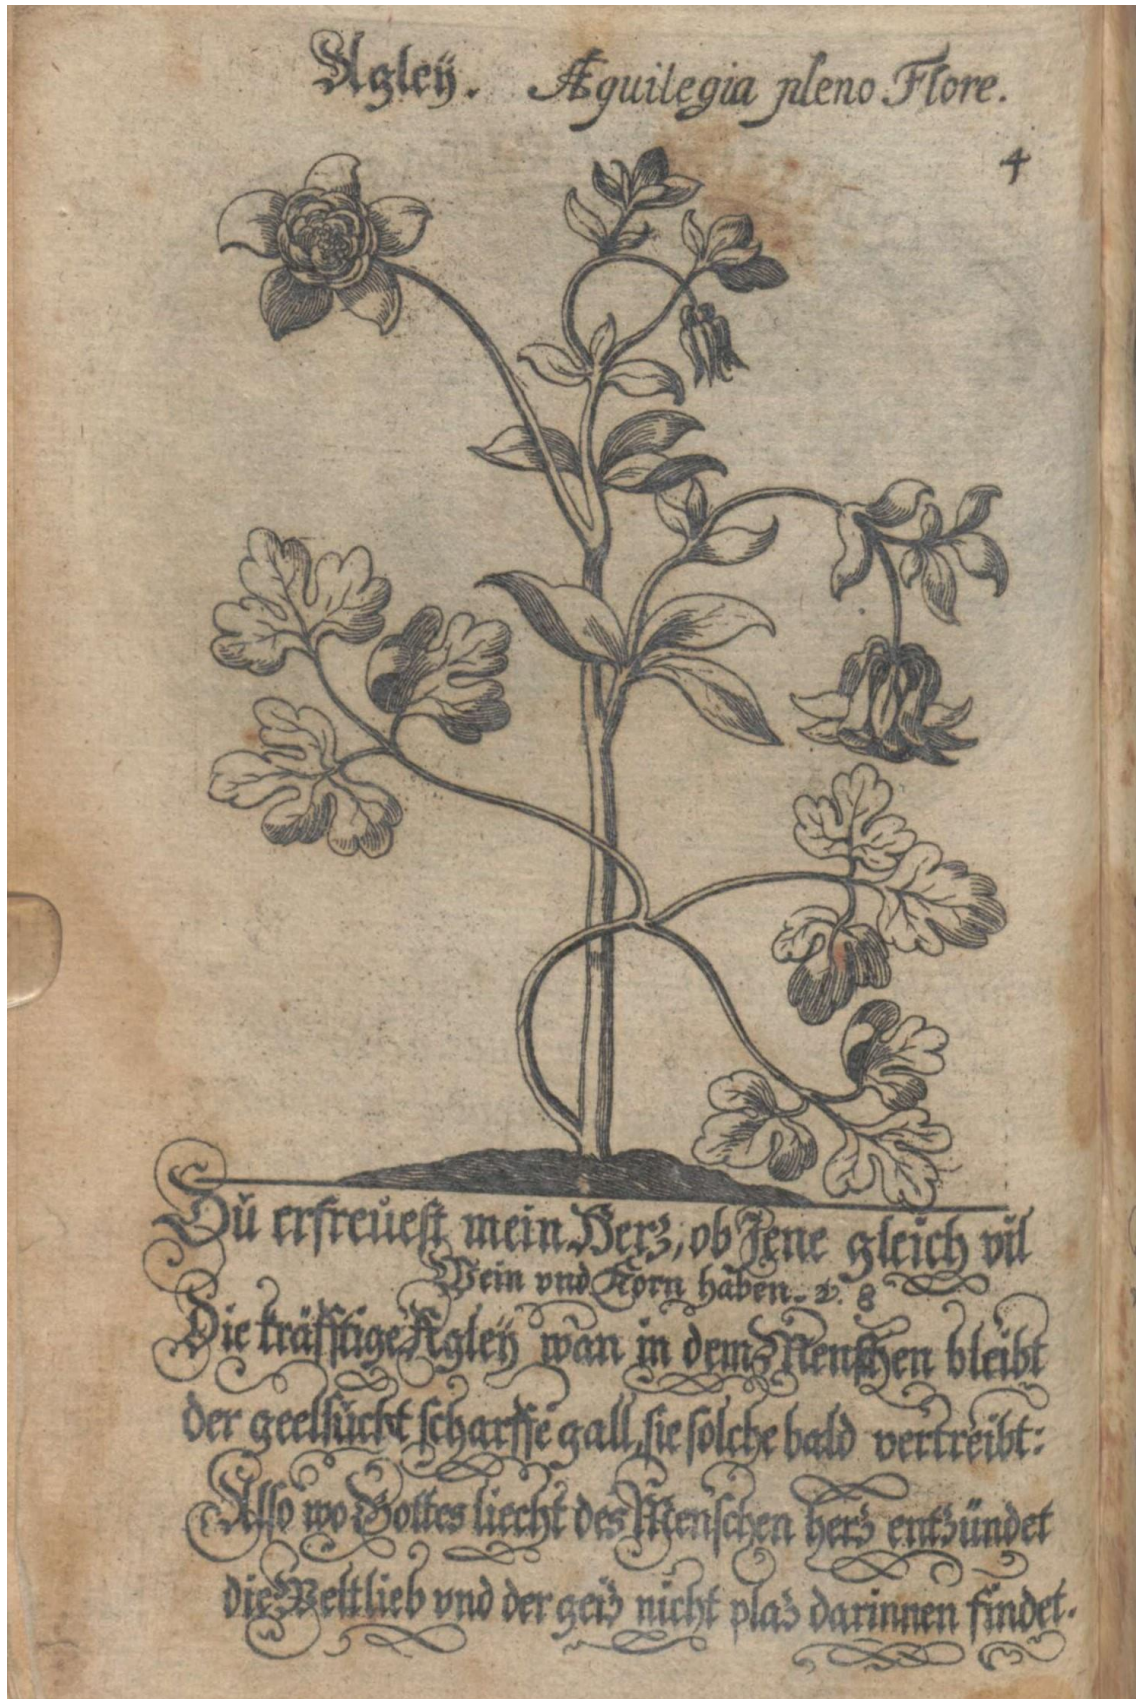 Agleÿ. Æquilegia pleno Flore.
4
Dü erfreüest mein Herz, ob Jene gleich vil
Wein vnd Korn haben. v. 8
Die kräfftige Agleÿ wan in dem Menschen bleibt
der geelsücht scharffe gall, sie solche bald vertreibt:
Also wo Gottes liecht des Menschen herz entzündet
die Weltlieb vnd der geiz nicht plaz darinnen findet.